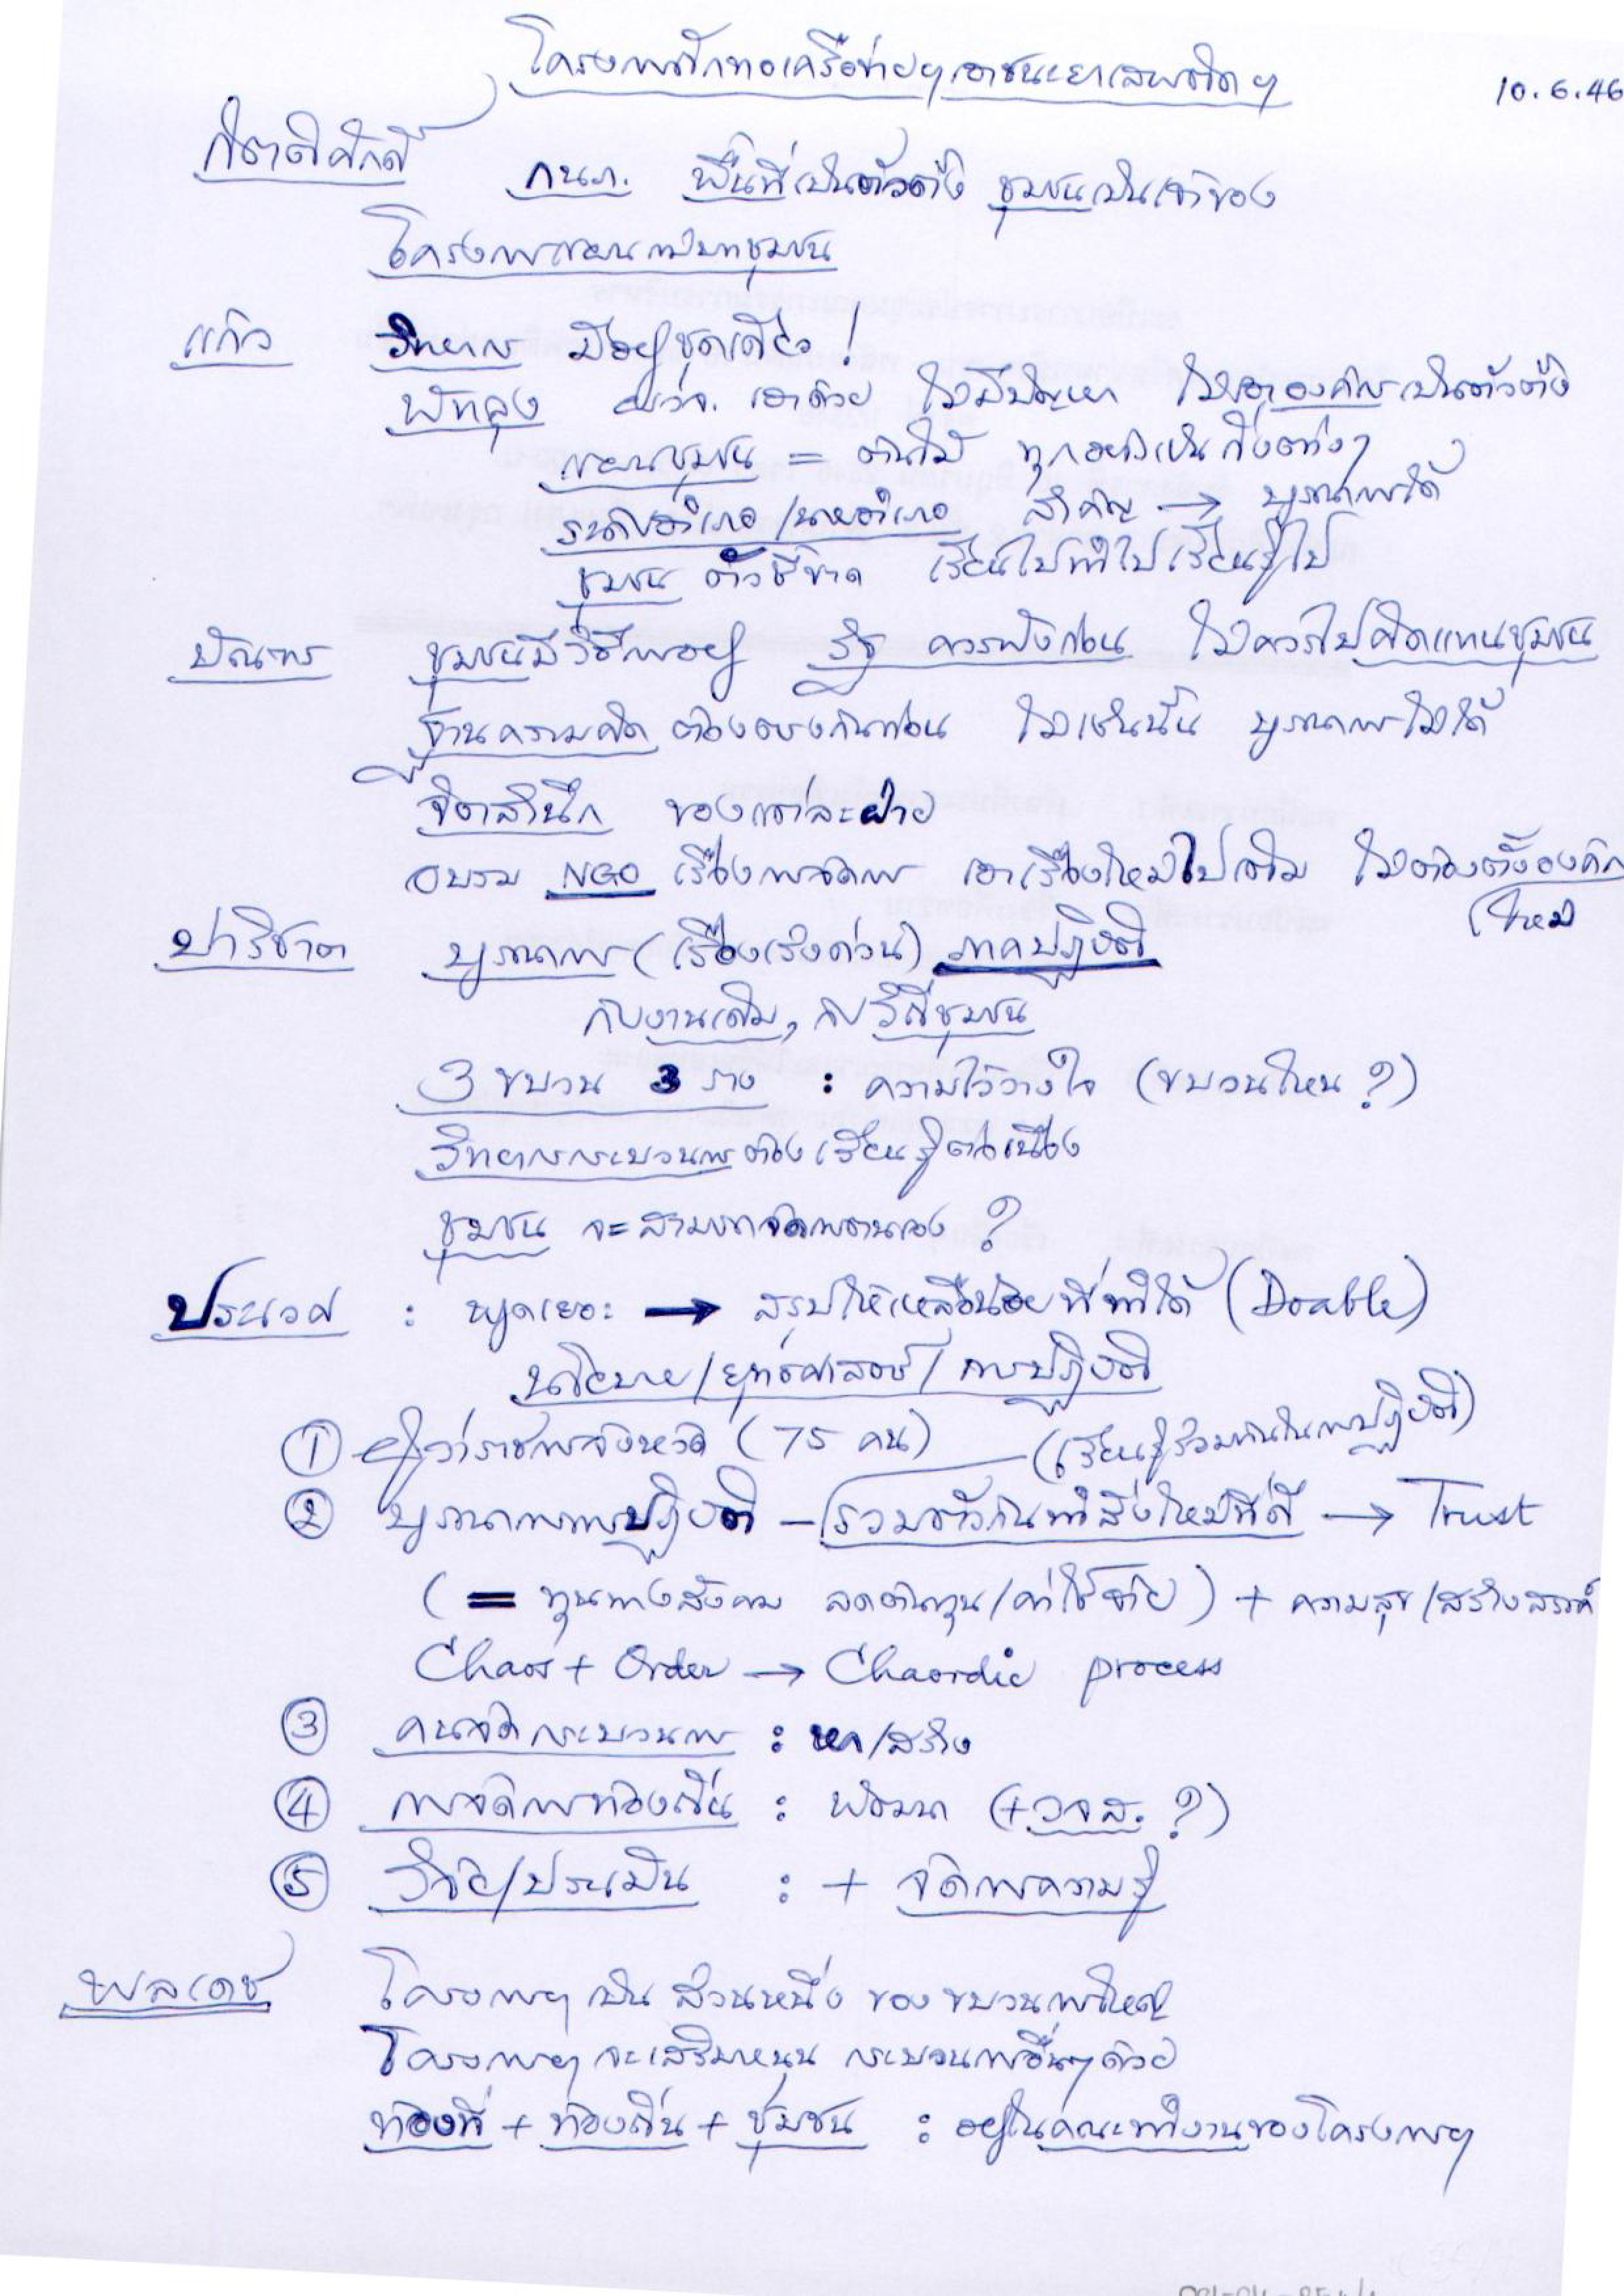 โครงการถักทอเครือข่ายฯ เอาชนะยาเสพติดฯ
10.6.46
กิตติศักดิ์ กนภ. พื้นที่เป็นตัวตั้ง ชุมชนเป็นเจ้าของ
โครงการแผนแม่บทชุมชน
แก้ว วิทยากร มีอยู่ชุดเดียว!
พัทลุง ผู้ว่าฯ เอาด้วย ไม่มีปัญหา ไม่เอาองค์กรเป็นตัวตั้ง
แผนชุมชน = ต้นไม้ ทุกอย่างเป็นกิ่งต่างๆ
ระดับอำเภอ/นายอำเภอ สำคัญ → บูรณาการได้
ชุมชน ตัวชี้ขาด เรียนไปทำไปเรียนรู้ไป
บัณฑร ชุมชนมีวิธีการอยู่ รัฐ ควรฟังก่อน ไม่ควรไปคิดแทนชุมชน
ฐานความคิด ต้องตรงกันก่อน ไม่เช่นนั้น บูรณาการไม่ได้
จิตสำนึก ของแต่ละฝ่าย
อบรม NGO เรื่องการจัดการ เอาเรื่องใหม่ไปเติม ไม่ต้องตั้งองค์กร
ใหม่
ปาริชาต บูรณาการ (เรื่องเร่งด่วน) ภาคปฏิบัติ
กับงานเดิม, กับวิถีชุมชน
3 ขบวน 3 ราง : ความไว้วางใจ (ขบวนไหน ?)
วิทยากรกระบวนการต้องเรียนรู้ต่อเนื่อง
ชุมชน จะสามารถจัดการตนเอง ?
ประเวศ : พูดเยอะ → สรุปให้เหลือน้อยที่ทำได้ (Doable)
นโยบาย/ยุทธศาสตร์/การปฏิบัติ
① ผู้ว่าราชการจังหวัด (75 คน) (เรียนรู้ร่วมกันในการปฏิบัติ)
② บูรณาการการปฏิบัติ – รวมตัวกันทำสิ่งใหม่ที่ดี → Trust
( = ทุนทางสังคม ลดต้นทุน/ค่าใช้จ่าย) + ความสุข/สร้างสรรค์
Chaos + Order → Chaordic process
③ คนจัดกระบวนการ : หา/สร้าง
④ การจัดการท้องถิ่น : พัฒนา (+ วจส. ?)
⑤ วิจัย/ประเมิน : + จัดการความรู้
พลเดช โครงการฯ เป็น ส่วนหนึ่ง ของ ขบวนการใหญ่
โครงการฯ จะเสริมหนุน กระบวนการอื่นๆ ด้วย
ท้องที่ + ท้องถิ่น + ชุมชน : อยู่ในคณะทำงานของโครงการฯ